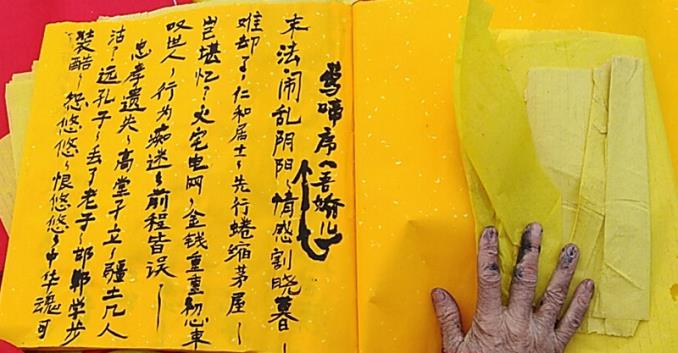 莺啼序
末法闹乱阴阳、情感割晓暮、
难却了、仁和居士、先行蜷缩茅屋、
岂堪忆、火宅电网、金钱重重初心
叹世人、行为痴迷、前程皆误、
忠孝遗失、高堂孑立、疆土几人
沽、远孔子、去了老子、邯郸学步
装酷、怨悠悠、恨悠悠、中华魂可